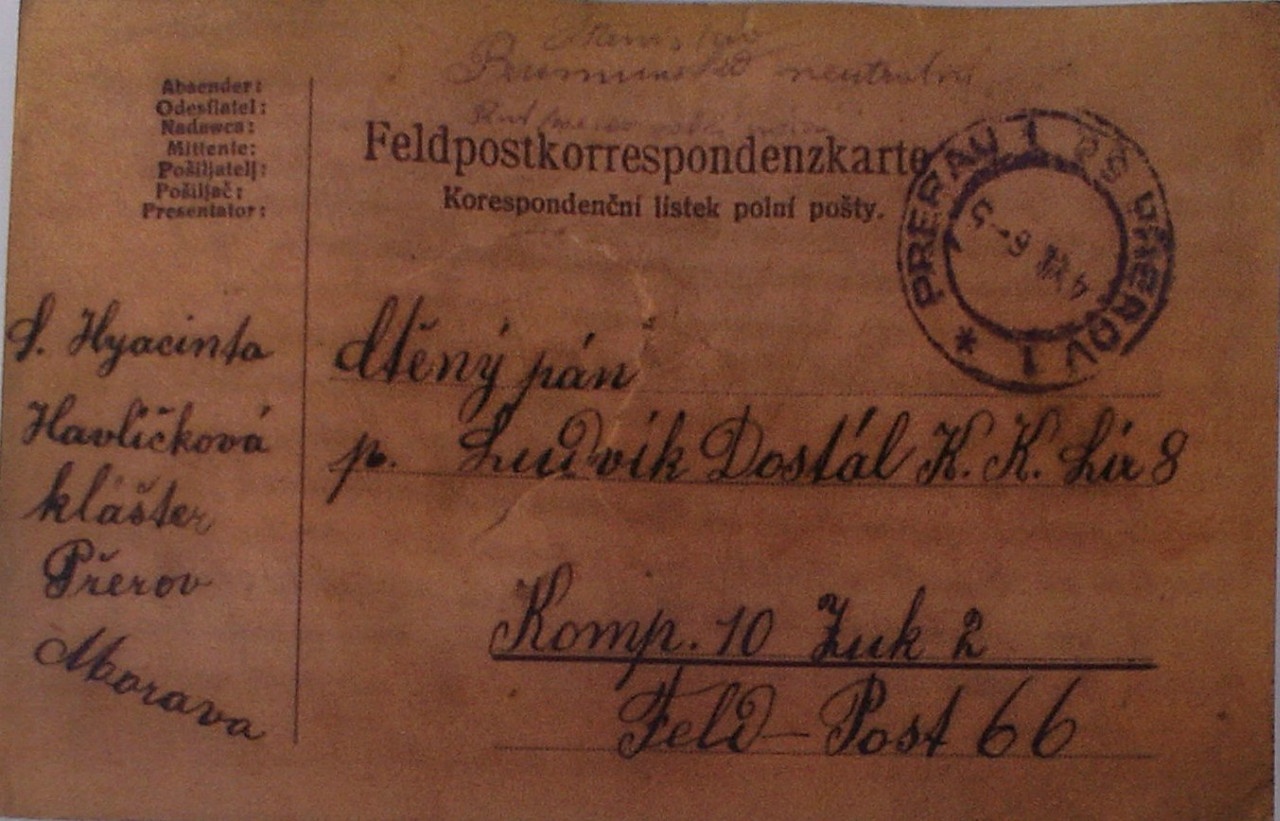 neutrální
Absender:
Odesílatel:
Nadawca:
Mittente:
Pošiljatelj:
Pošiljač:
Presentator:
Feldpostkorrespondenzkarte
Korespondenční lístek polní pošty.
PRERAU 1
PŘEROV 1
S. Hyacinta
Havlíčková
klášter
Přerov
Morava
Ctěný pán
p. Ludvík Dostál K. K. Lir 8
Komp. 10 Zuk 2
Feld-Post 66